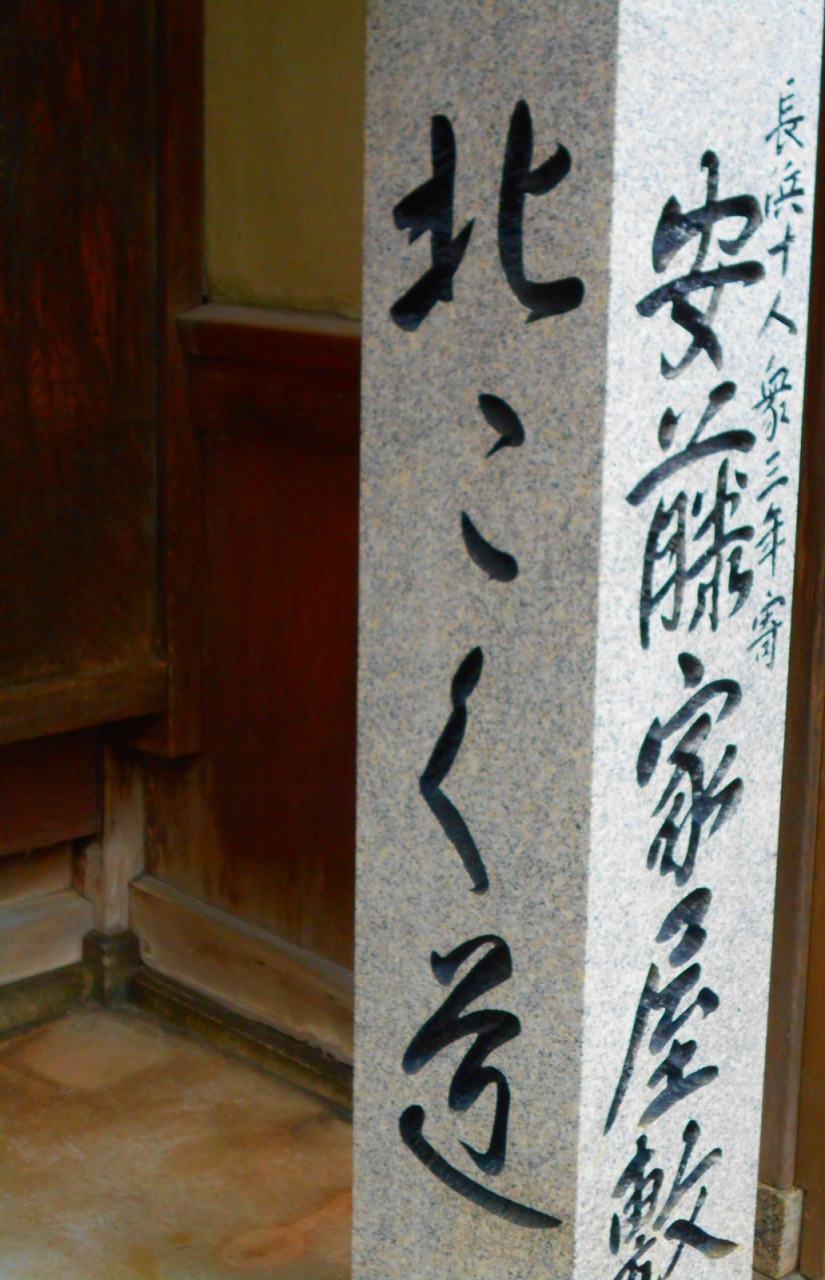 長浜十人衆三年寄
安藤家屋敷
北こく道